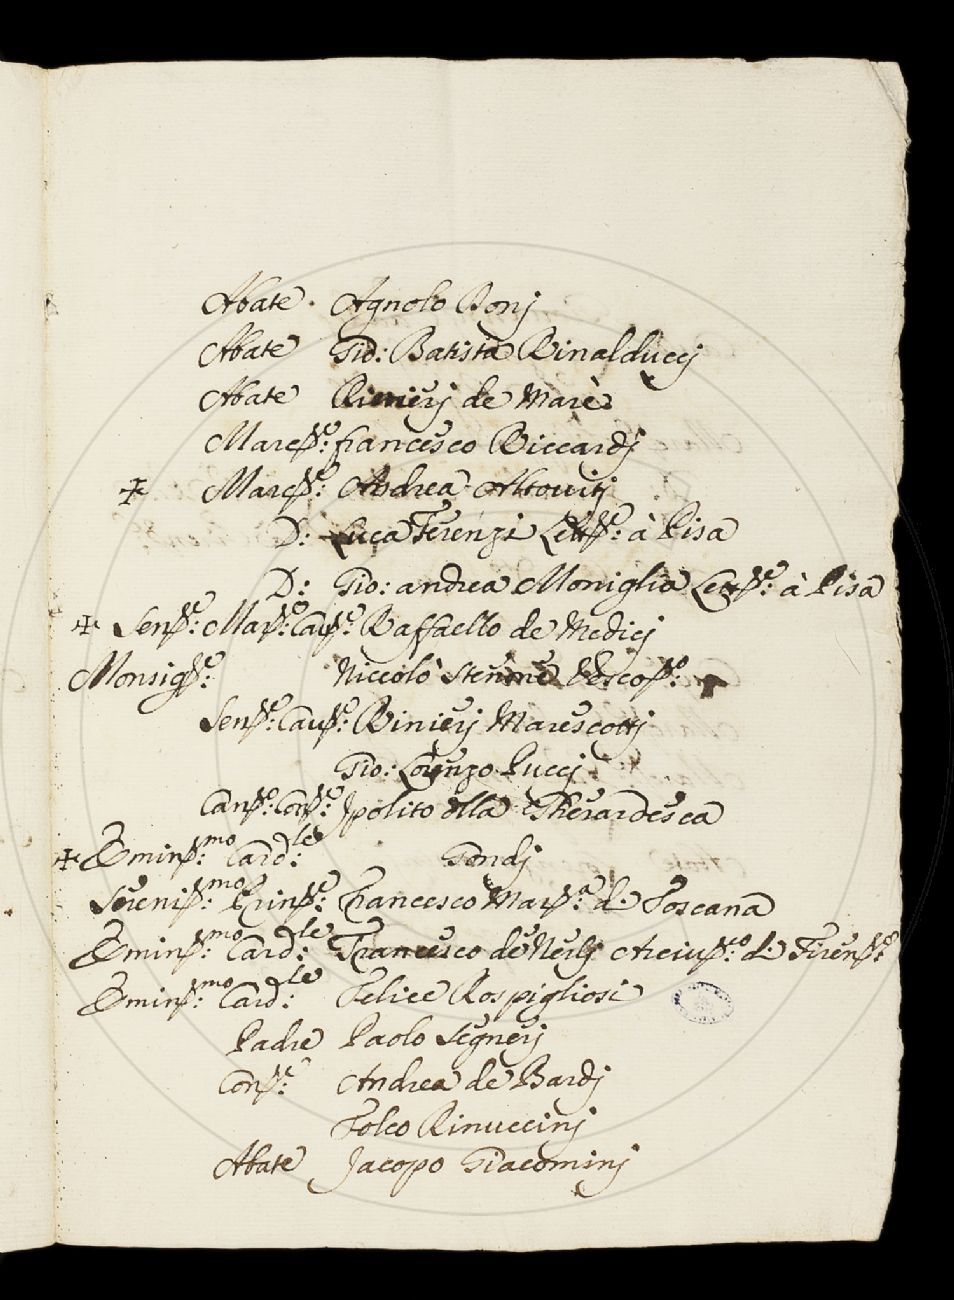 Abate Agnolo Bonj
Abate Gio: Batista Rinalduccj
Abate Rinierj de Marè
Marc.se: francesco Riccardj
✠ Marc.se: Andrea Altouitj
D: Luca Terenzi Lett.re: à Pisa
D: Gio: andrea Moniglia Lett.re: à Pisa
✠ Sen.re: Mar.se: Cau.re: Raffaello de Medicj
Monsig.re: Niccolò Vesco.o:
Sen.re: Cau.re: Rinierj Marescottj
Gio: Lorenzo Puccj
Can.co: Con.te: Jpolito della Gherardesca
✠ Emin.mo: Card.le: Gondj
Sereniss.mo: Prin.pe: Francesco Mar.a: di Toscana
Emin.mo: Card.le: Francesco de Nerlj Arciu.o: di Firen.e:
Emin.mo: Card.le: Felice Rospigliosi
Padre Paolo Segnerj
Con.te: Andrea de Bardj
Folco Rinuccinj
Abate Jacopo Giacominj